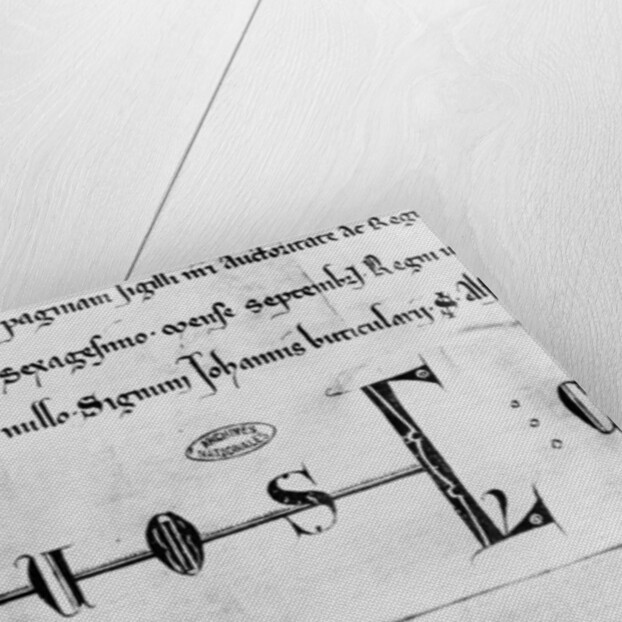 paginam sigilli nri Auctoritate Ac Regi
Sexagesimo. Mense Septemb3. Regni u
nullo. Signum Johannis buticularij. S. Alf
ARCHIVES
NATIONALES
u O S